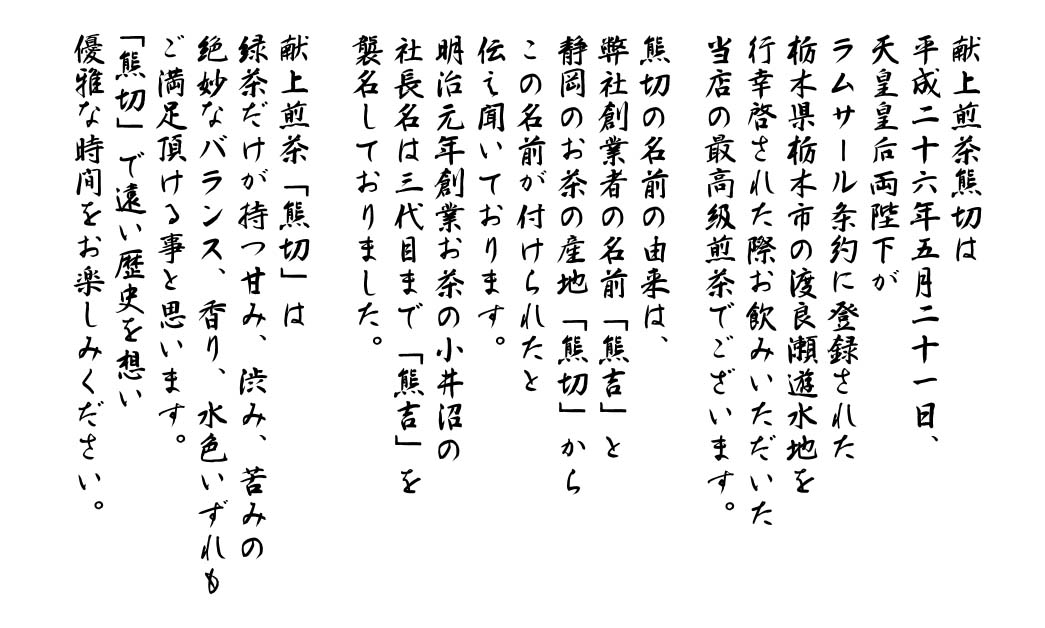 献上煎茶熊切は
平成二十六年五月二十一日、
天皇皇后両陛下が
ラムサール条約に登録された
栃木県栃木市の渡良瀬遊水地を
行幸啓された際お飲みいただいた
当店の最高級煎茶でございます。
熊切の名前の由来は、
弊社創業者の名前「熊吉」と
静岡のお茶の産地「熊切」から
この名前が付けられたと
伝え聞いております。
明治元年創業お茶の小井沼の
社長名は三代目まで「熊吉」を
襲名しておりました。
献上煎茶「熊切」は
緑茶だけが持つ甘み、渋み、苦みの
絶妙なバランス、香り、水色いずれも
ご満足頂ける事と思います。
「熊切」で遠い歴史を想い
優雅な時間をお楽しみください。